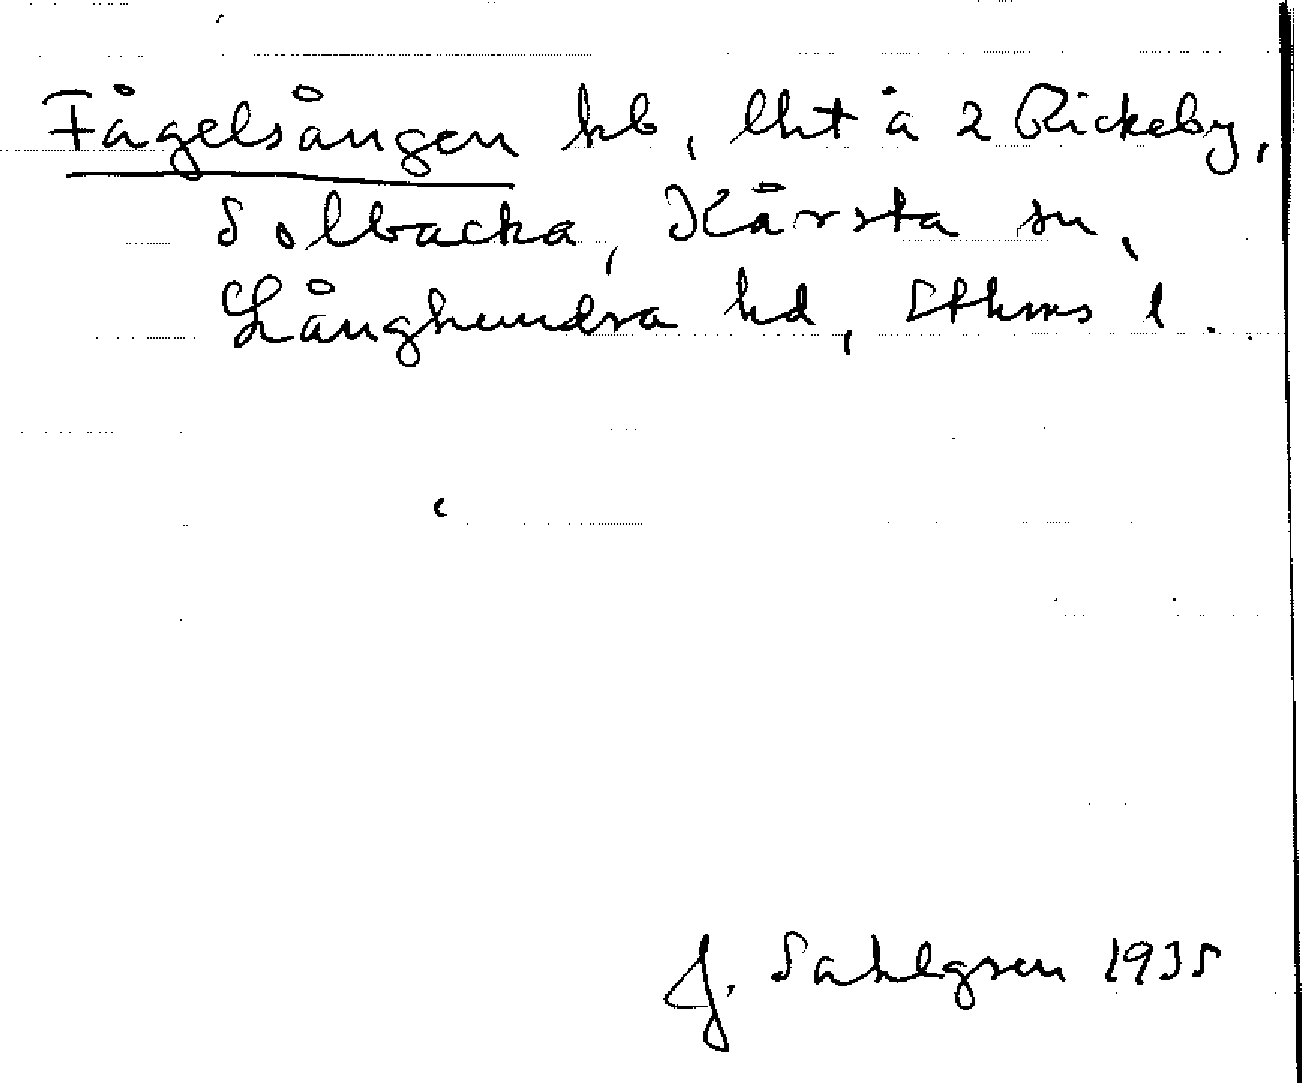 Fågelsången hb, lht å 2 Rickeby,
Solbacka, Kårsta sn,
Långhundra hd, Sthms l.
J. Sahlgren 1935